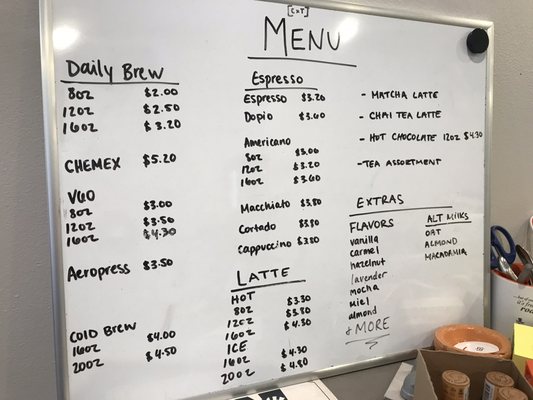 [CXT]
MENU
Daily Brew
8oz $2.00
12oz $2.50
16oz $3.20
CHEMEX $5.20
V60
8oz $3.00
12oz $3.50
16oz $4.30
Aeropress $3.50
COLD BREW
16oz $4.00
20oz $4.50
Espresso
Espresso $3.20
Dopio $3.60
Americano
8oz $3.00
12oz $3.20
16oz $3.60
Macchiato $3.80
Cortado $3.80
Cappuccino $3.80
LATTE
HOT
8oz $3.30
12oz $3.80
16oz $4.30
ICE
16oz $4.30
20oz $4.80
- MATCHA LATTE
- CHAI TEA LATTE
- HOT CHOCOLATE 12oz $4.30
- TEA ASSORTMENT
EXTRAS
FLAVORS
vanilla
carmel
hazelnut
lavender
mocha
miel
almond
& MORE
ALT MILKS
OAT
ALMOND
MACADAMIA